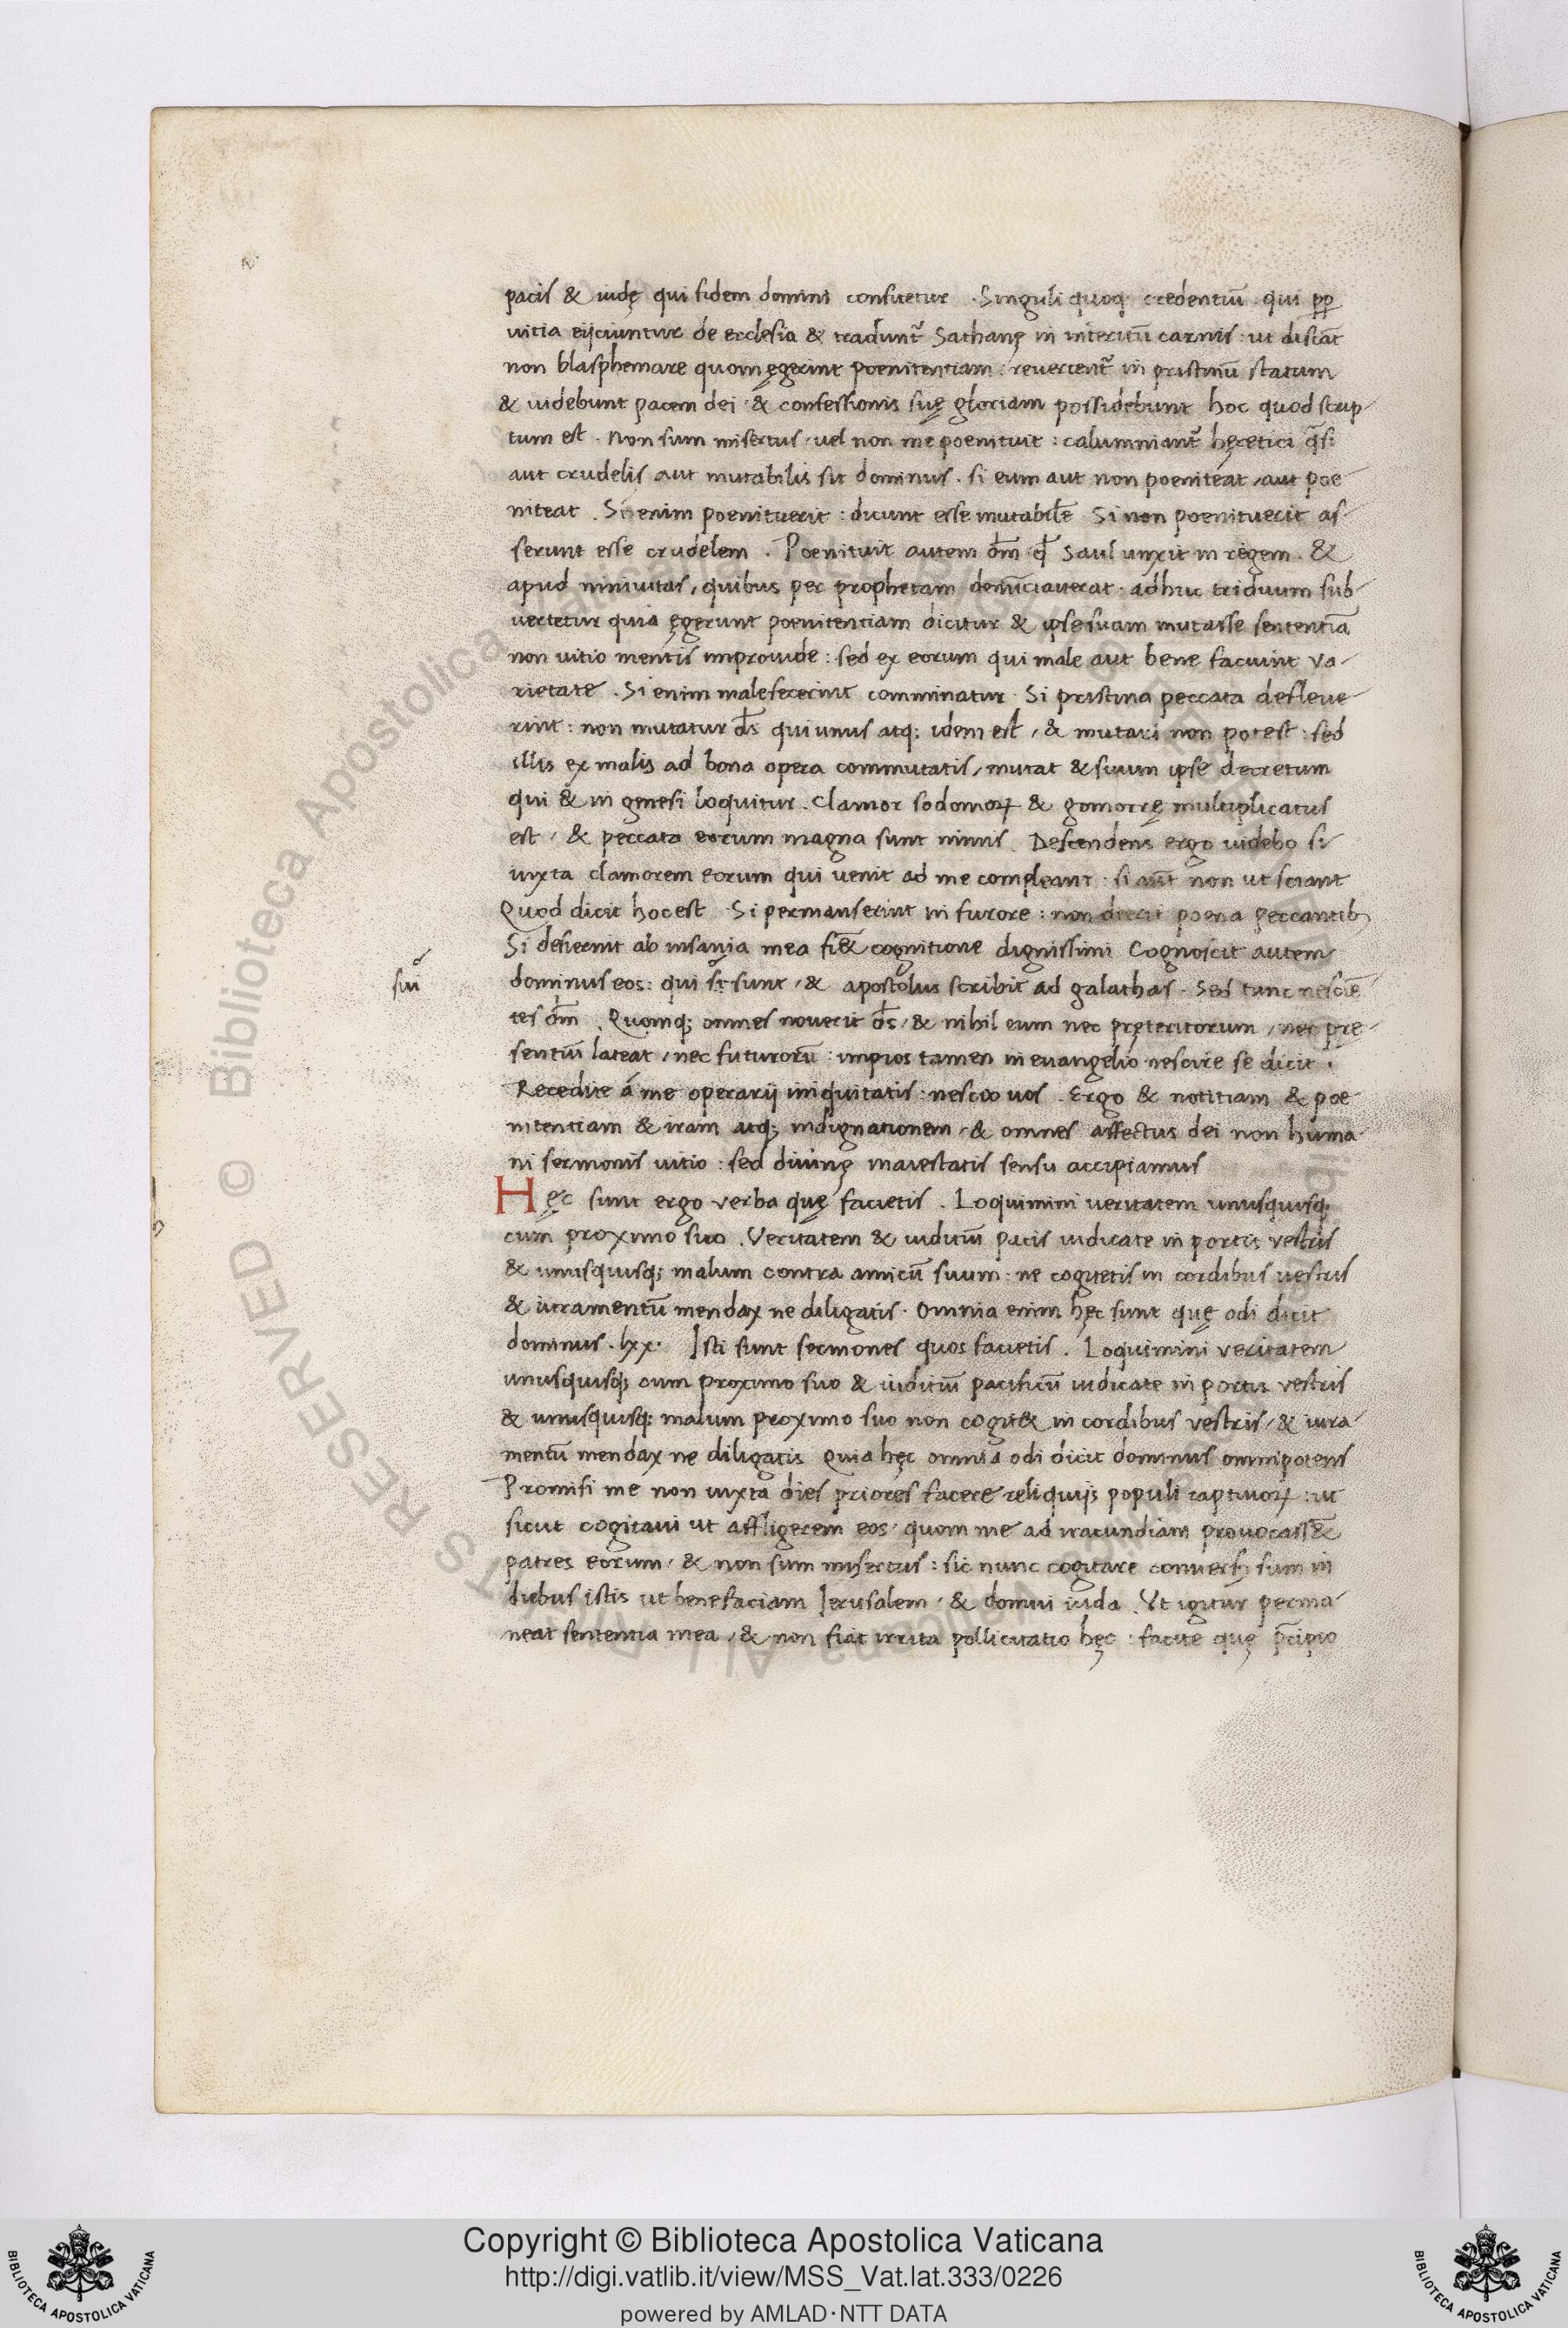 pacis & iudę qui fidem domini confitetur . Singuli quoq; credentiū qui ꝓꝑ
vitia eijciuntur de ecclesia & tradunt᷑ Sathanę in interitū carnis : ut discāt
non blasphemare quom ęgerint poenitentiam : revertent᷑ in pristinū statum
& videbunt pacem dei & confessionis suę gloriam possidebunt hoc quod scrip-
tum est . Non sum misertus / vel non me poenituit : calumniant᷑ hęretici q̄si
aut crudelis aut mutabilis sit dominus . si eum aut non poeniteat / aut poe-
niteat . Si enim poenituerit : dicunt esse mutabilē Si non poenituerit as-
serunt esse crudelem . Poenituit autem dm̄ qđ Saul unxit in regem . &
apud ninivitas / quibus per prophetam denūciaverat . adhuc triduum sub-
vertetur quia ęgerunt poenitentiam dicitur & ipse suam mutasse sententiā
non vitio mentis improvide : sed ex eorum qui male aut bene faciunt va-
rietate . Si enim male fecerint comminatur . Si pristina peccata defleve-
rint : non mutatur ds̄ qui unus atq; idem est / & mutari non potest : sed
illis ex malis ad bona opera commutatis / mutat & suum ipse decretum
qui & in genesi loquitur . Clamor sodomoꝝ & gomorrę multiplicatus
est / & peccata eorum magna sunt nimis Descendens ergo videbo si
iuxta clamorem eorum qui venit ad me compleant : si aūt non ut sciant
Quod dicit hoc est Si permanserint in furore : non deerit poena peccantib;
Si desierint ab insania mea fiēt cognitione dignissimi Cognoscit autem
dominus eos : qui st sunt / & apostolus scribit ad galathas . Sed tunc nesciē-
sui
tes dm̄ . Quomq; omnes noverit ds̄ / & nihil eum nec pręteritorum / nec pre-
sentiū lateat / nec futurorū : impios tamen in evangelio nescire se dicit .
Recedite á me operarij iniquitatis : nescio vos . Ergo & notitiam & poe-
nitentiam & iram atq; indignationem / & omnes affectus dei non huma-
ni sermonis vitio : sed divinę maiestatis sensu accipiamus
Hęc sunt ergo verba quę facietis . Loquimini veritatem unusquisq;
cum proximo suo . Veritatem & iuditiū pacis iudicate in portis vestris
& unusquisq; malum contra amicū suum : ne cogitetis in cordibus vestris
& iuramentū mendax ne diligatis . Omnia enim hęc sunt quę odi dicit
dominus . lxx . Isti sunt sermones quos facietis . Loquimini veritatem
unusquisq; cum proximo suo & iuditiū pacificū iudicate in portis vestris
& unusquisq; malum proximo suo non cogit& in cordibus vestris / & iura-
mentū mendax ne diligatis Quia hęc omnia odi dicit dominus omnipotens
Promisi me non iuxta dies priores facere reliquijs populi captivoꝝ : ut
sicut cogitavi ut affligerem eos quom me ad iracundiam provocass&
patres eorum / & non sum misertus : sic nunc cogitare conversꝰ sum in
diebus istis ut benefaciam Jerusalem / & domui iuda . Ut igitur perma-
neat sententia mea / & non fiat irrita pollicitatio hęc : facite quę p̄cipio
© Biblioteca Apostolica Vaticana
ALL RIGHTS RESERVED
Copyright © Biblioteca Apostolica Vaticana
http://digi.vatlib.it/view/MSS_Vat.lat.333/0226
powered by AMLAD·NTT DATA
BIBLIOTECA APOSTOLICA VATICANA
BIBLIOTECA APOSTOLICA VATICANA